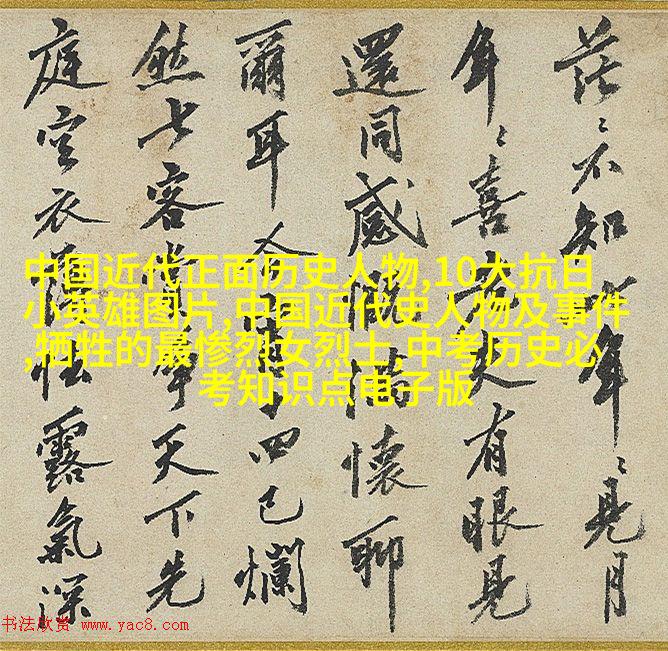 茫〻不知年〻見月
年〻喜有眼見
還同感慨滿懷聊
爾耳四已爛
然七客天下先
庭空衣怯露氣深
中国近代正面历史人物,10大抗日
小英雄图片,中国近代史人物及事件
,牺牲的最惨烈女烈士,中考历史必
考知识点电子版
书法欣赏 www.yac8.com